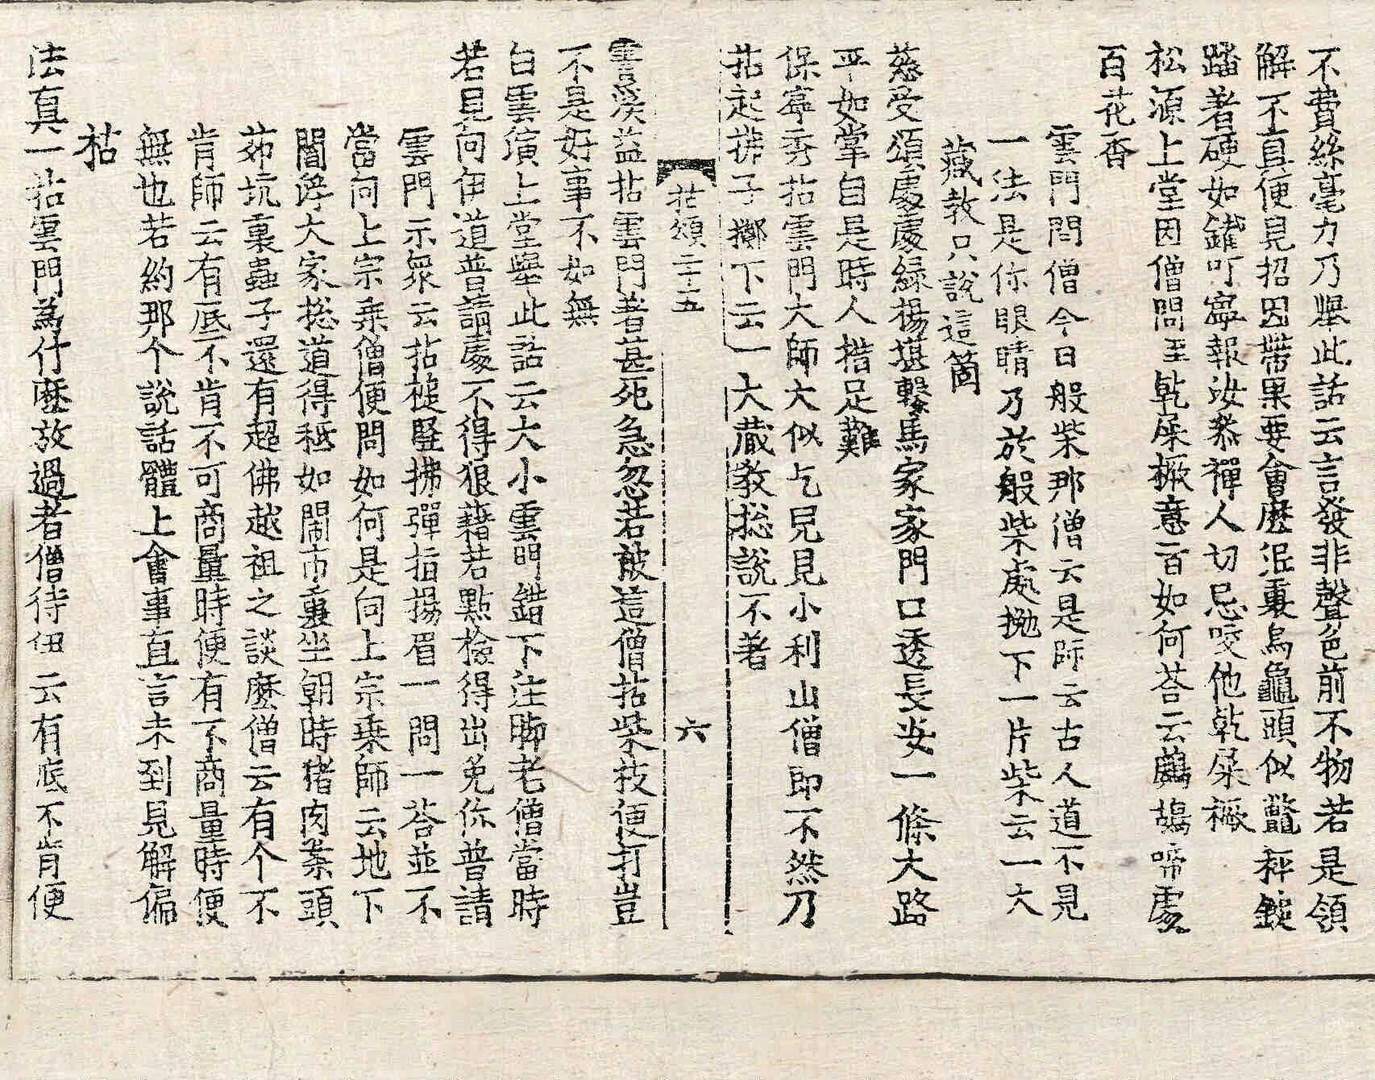 不費絲毫力乃擧此話云言發非聲色前不物若是領
解不眞便見招因帶果要會麽泥裏烏龜頭似鼈秤鎚
踏著硬如鐵叮寧報汝叅禪人切忌咬他乾屎橛
松源上堂因僧問至乾屎橛意旨如何荅云鷓鴣啼處
百花香
雲門問僧今日般柴那僧云是師云古人道不見
一法是你眼睛乃於般柴處抛下一片柴云一大
藏敎只說這箇
慈受頌處處綠楊堪繫馬家家門口透長安一條大路
平如掌自是時人措足難
保寧秀拈雲門大師大似乞兒見小利山僧即不然乃
拈起拂子擲下云一大藏敎摠說不著
拈頌二十五
六
霅溪益拈雲門著甚死急忽若被這僧拈柴枝便打豈
不是好事不如無
白雲演上堂擧此話云大小雲門錯下注脚老僧當時
若見向伊道普請處不得狼藉若點檢得出免你普請
雲門示衆云拈槌竪拂彈指揚眉一問一荅並不
當向上宗乘僧便問如何是向上宗乘師云地下
閻浮大家摠道得秪如鬧市裏坐朝時猪肉案頭
茆坑裏蟲子還有超佛越祖之談麽僧云有个不
肯師云有底不肯不可商量時便有不商量時便
無也若約那个說話體上會事直言未到見解偏
枯
法眞一拈雲門爲什麽放過者僧待伊 云有底不肯便